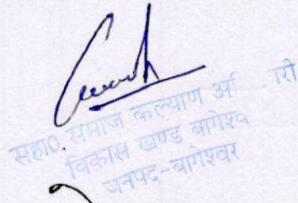 सहा0 समाज कल्याण अ री
विकास खण्ड बागेश्व
जनपद-बागेश्वर